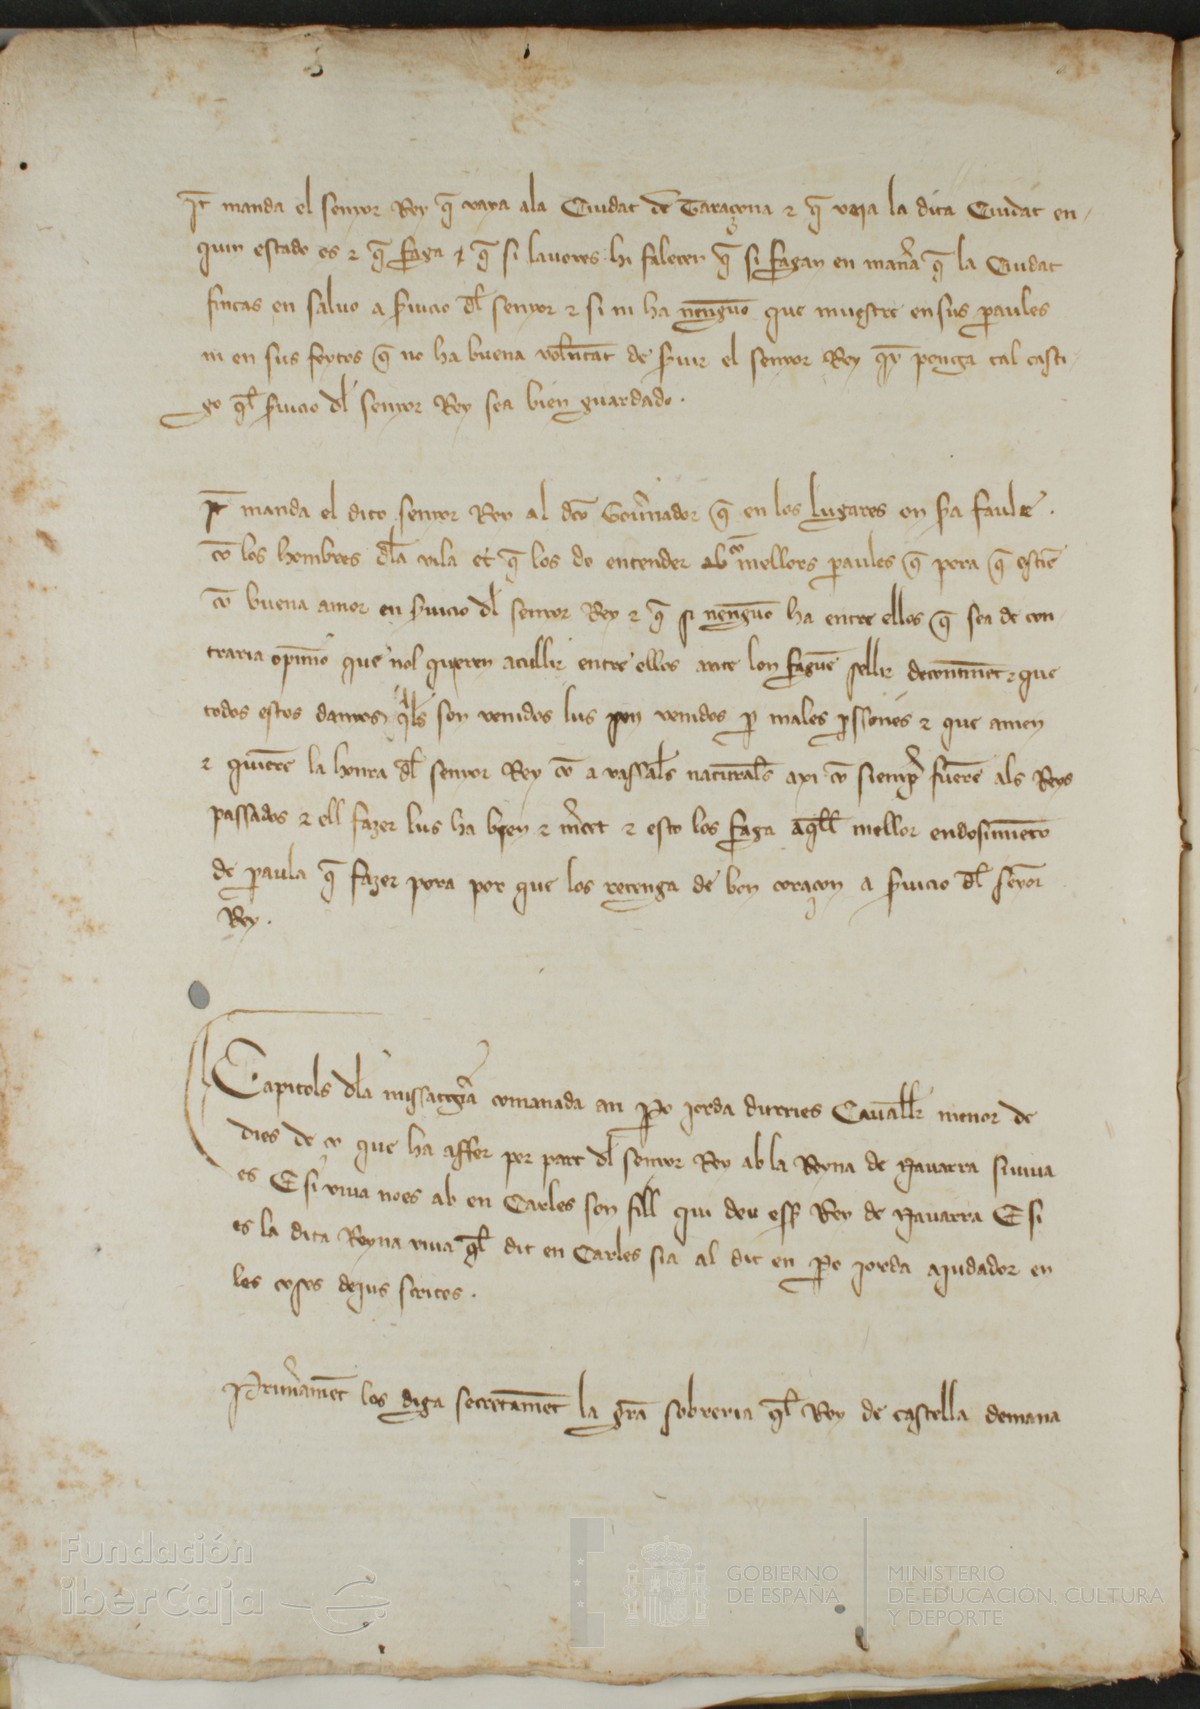 It manda el senyor Rey q̄ vaya ala Ciudat de Taraçona ⁊ q̄ veia la dita Ciudat en
quin estado es ⁊ q̄ faga ⁊ q̄ si lauores hi falecen q̄ si fagan en man̄a q̄ la Ciudat
fincas en saluo a s̄uicio dl̄ senyor ⁊ si ni ha nenguno que muestre en sus paules
ni en sus feytos q̄ no ha buena volūtat de s̄uir el senyor Rey q̄ y penga tal casti
go q̄l s̄uicio dl̄ senyor Rey sea bien guardado .
It manda el dito senyor Rey al dc̄o Goūnador q̄ en los lugares on s̄a faule .
cō los hombres dl̄a vila et q̄ los do entender ab mellors paules q̄ pora q̄ estiē
cō buena amor en s̄uicio dl̄ senyor Rey ⁊ q̄ si nenguno ha entre ellos q̄ sea de con
traria opinio que nol quieren acullir entre ellos ante lon faguē sellir decontinēt ⁊ que
todos estos danyos q̄ls son venidos lus son venidos p̄ males p̄ssones ⁊ que amen
⁊ quierē la honra dl̄ senyor Rey cō a vassals naturals axi cō siemp̄ fuerē als Reys
passados ⁊ ell fazer lus ha bien ⁊ m̄cet ⁊ esto los faga ab q̄ll mellor endosimiento
de paula q̄ fazer pora por que los retenga de bon coraçon a s̄uicio dl̄ senyor
Rey .
Capitols dl̄a missatgīa comanada an P̄o Jorda durries Cauall̄r menor de
dies de ço que ha affer por part dl̄ senyor Rey ab la Reyna de Nauarra si viua
es E si viua no es ab en Carles son fill qui deu ess̄ Rey de Nauarra E si
es la dita Reyna viua q̄l dit en Carles sia al dit en P̄o Jorda aiudador en
les coses deius scrites .
Prim̄ament los diga secretament la gr̄a sobreria q̄l Rey de Castella demana
Fundación
iberCaja
GOBIERNO
DE ESPAÑA
MINISTERIO
DE EDUCACIÓN, CULTURA
Y DEPORTE